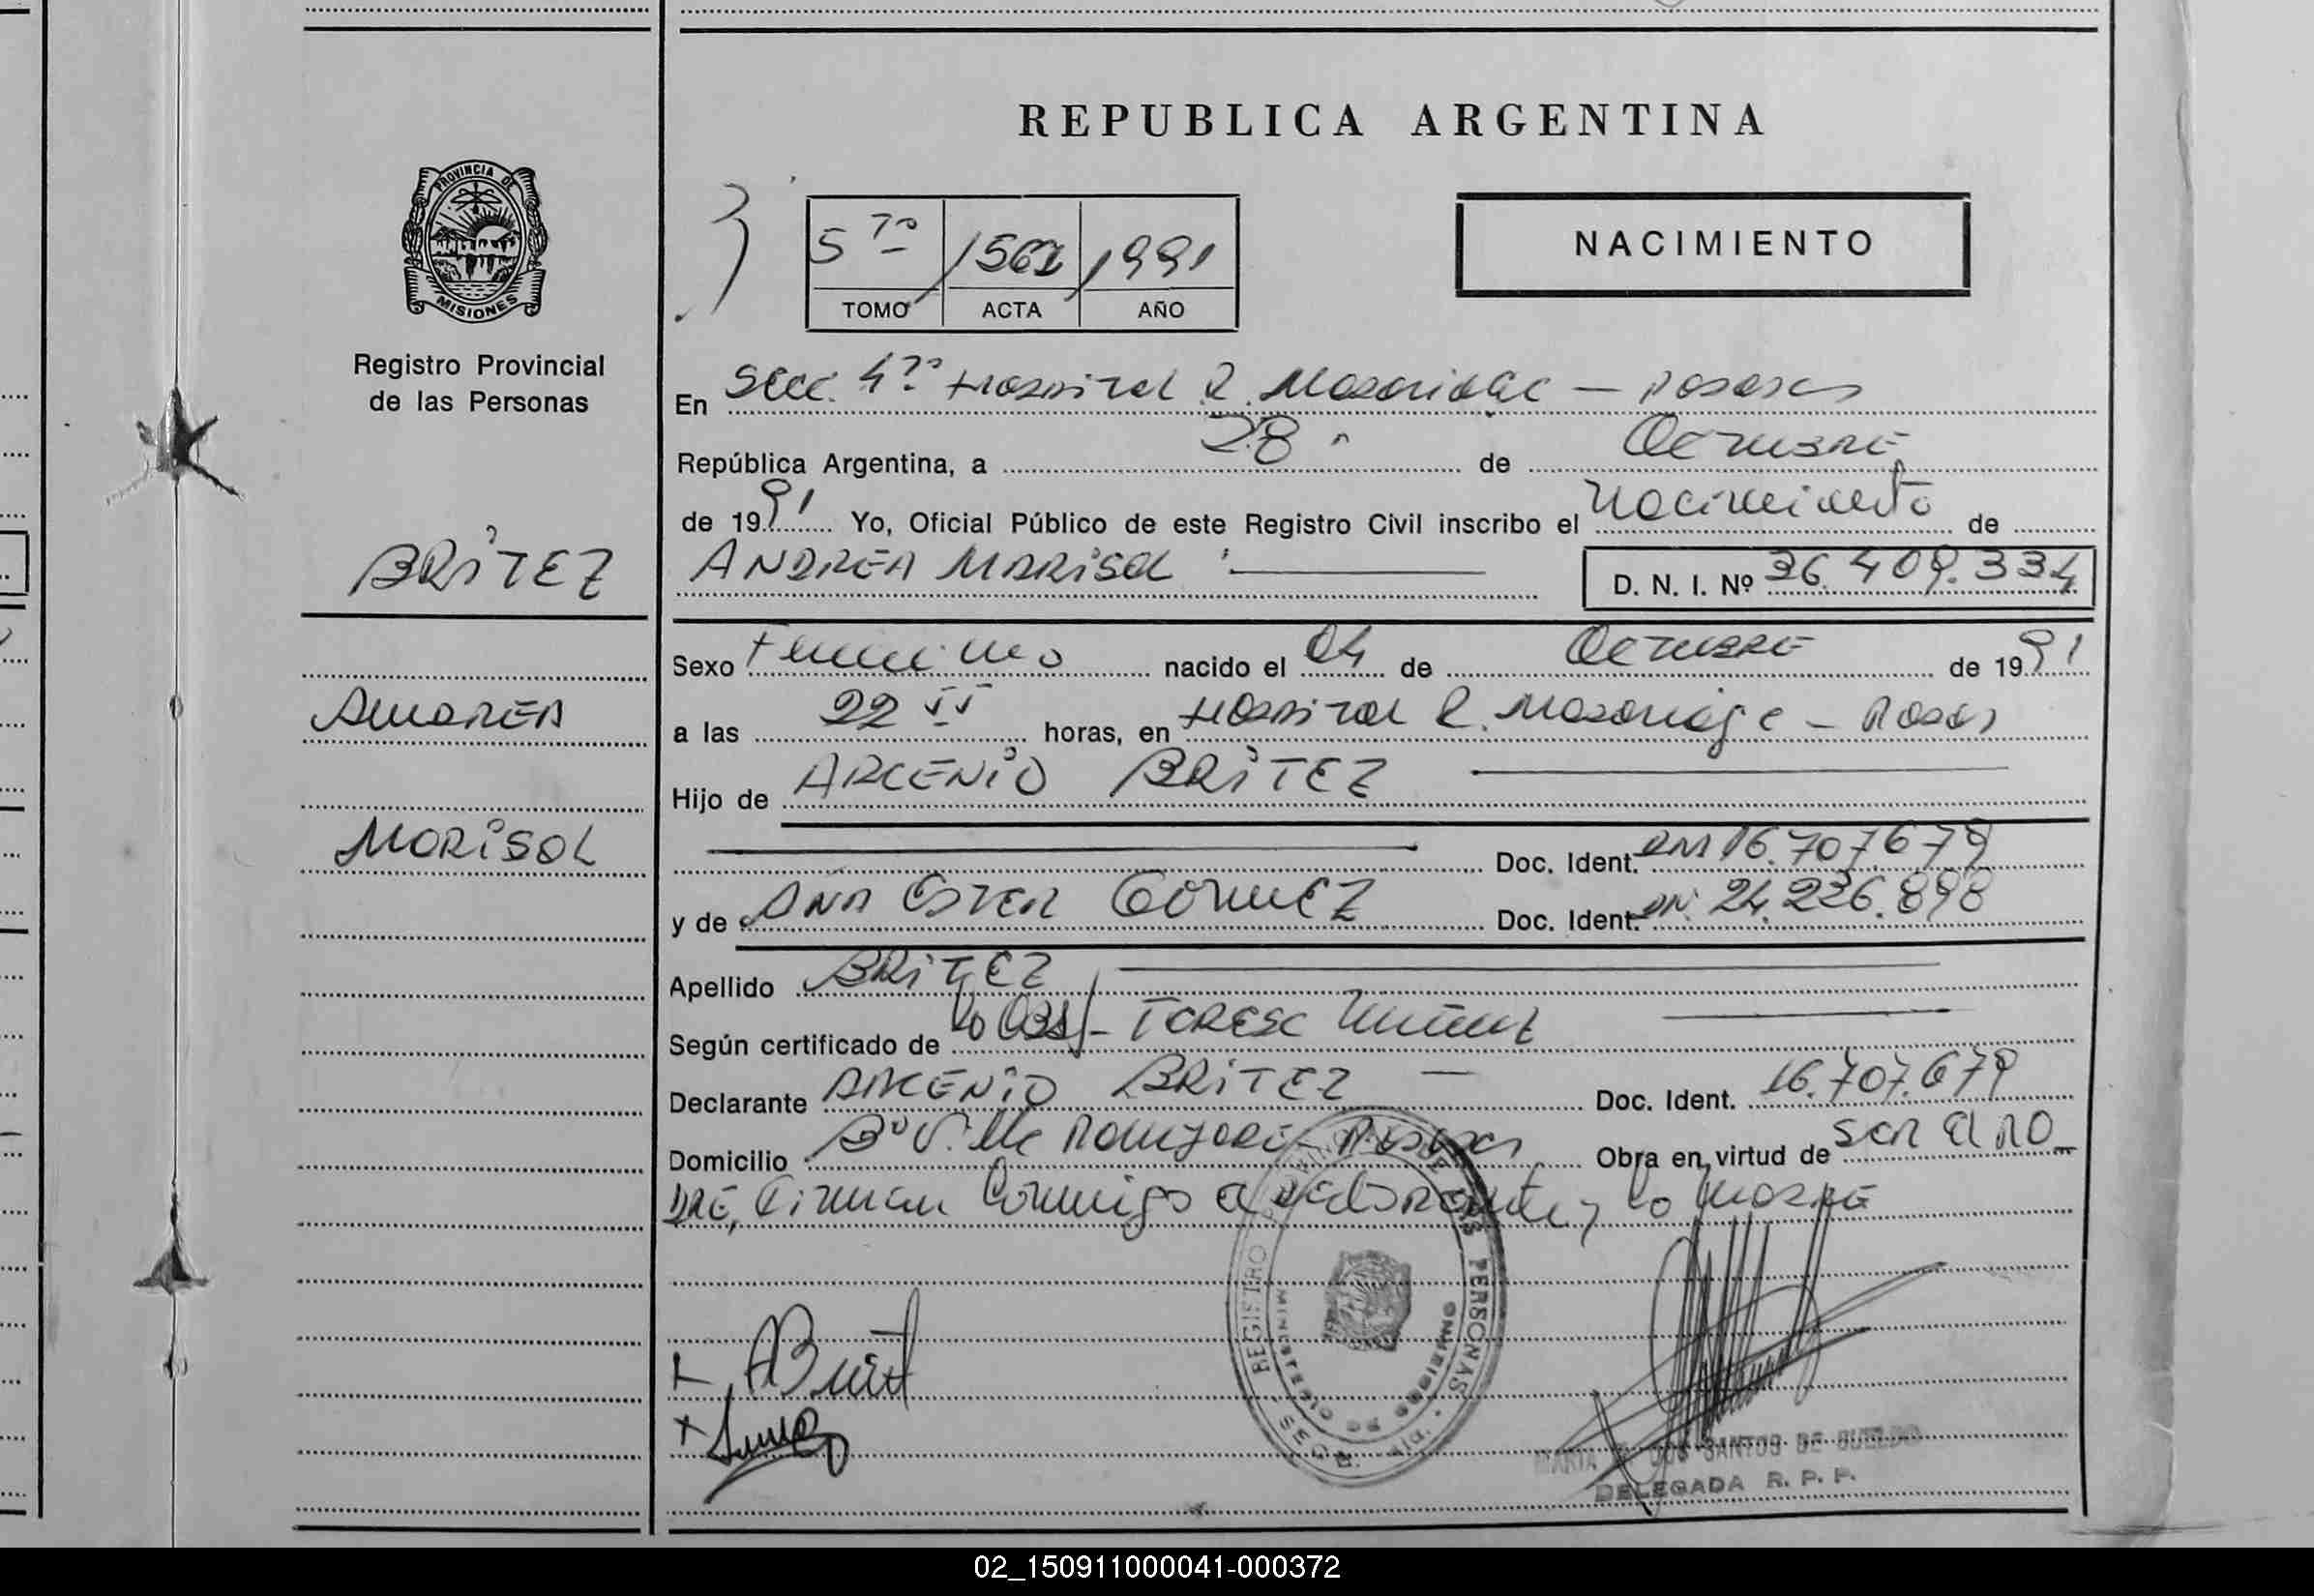 REPUBLICA ARGENTINA
PROVINCIA DE
MISIONES
Registro Provincial
de las Personas
5 TO
1991
TOMO ACTA AÑO
NACIMIENTO
En Secc. 4ta Hospital R. Madariaga - Posadas
República Argentina, a 28 de Octubre
de 1991 Yo, Oficial Público de este Registro Civil inscribo el Nacimiento de
BRITEZ
ANDREA MARISOL
D. N. I. Nº 36.409.334
Sexo Femenino nacido el 04 de Octubre de 1991
ANDREA
a las 22 horas, en Hospital R. Madariaga - Posadas
Hijo de ARCENIO BRITEZ
MARISOL
Doc. Ident. 16.707.679
y de ANA ESTER GOMEZ Doc. Ident. 24.226.898
Apellido BRITEZ
Según certificado de la Obst. Teresa
Declarante ARCENIO BRITEZ Doc. Ident. 16.707.679
Domicilio Bº Posadas Obra en virtud de SER EL PA
DRE, Firman Conmigo el declarante y la MADRE
REGISTRO PROVINCIAL DE LAS PERSONAS
MINISTERIO DE GOBIERNO
MARIA DOS SANTOS DE
DELEGADA R. P. P.
02_150911000041-000372